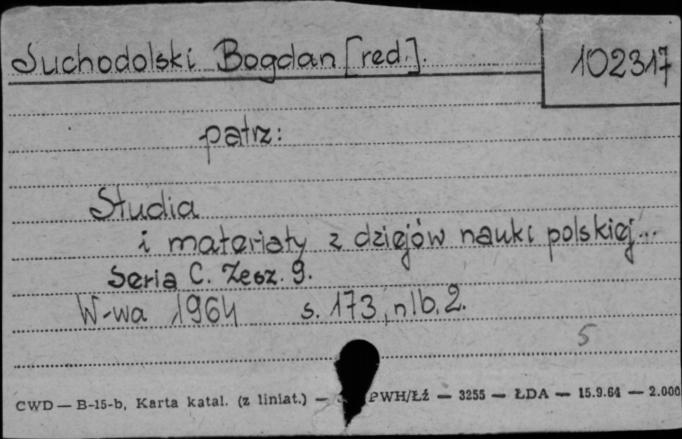 Suchodolski Bogdan [red.].
102317
patrz:
Studia
i materiały z dziejów nauki polskiej...
Seria C. Zesz. 9.
W-wa 1964 s. 173, nlb. 2.
5
CWD — B-15-b, Karta katal. (z liniat.) — PWH/Łź — 3255 — ŁDA — 15.9.64 — 2.000